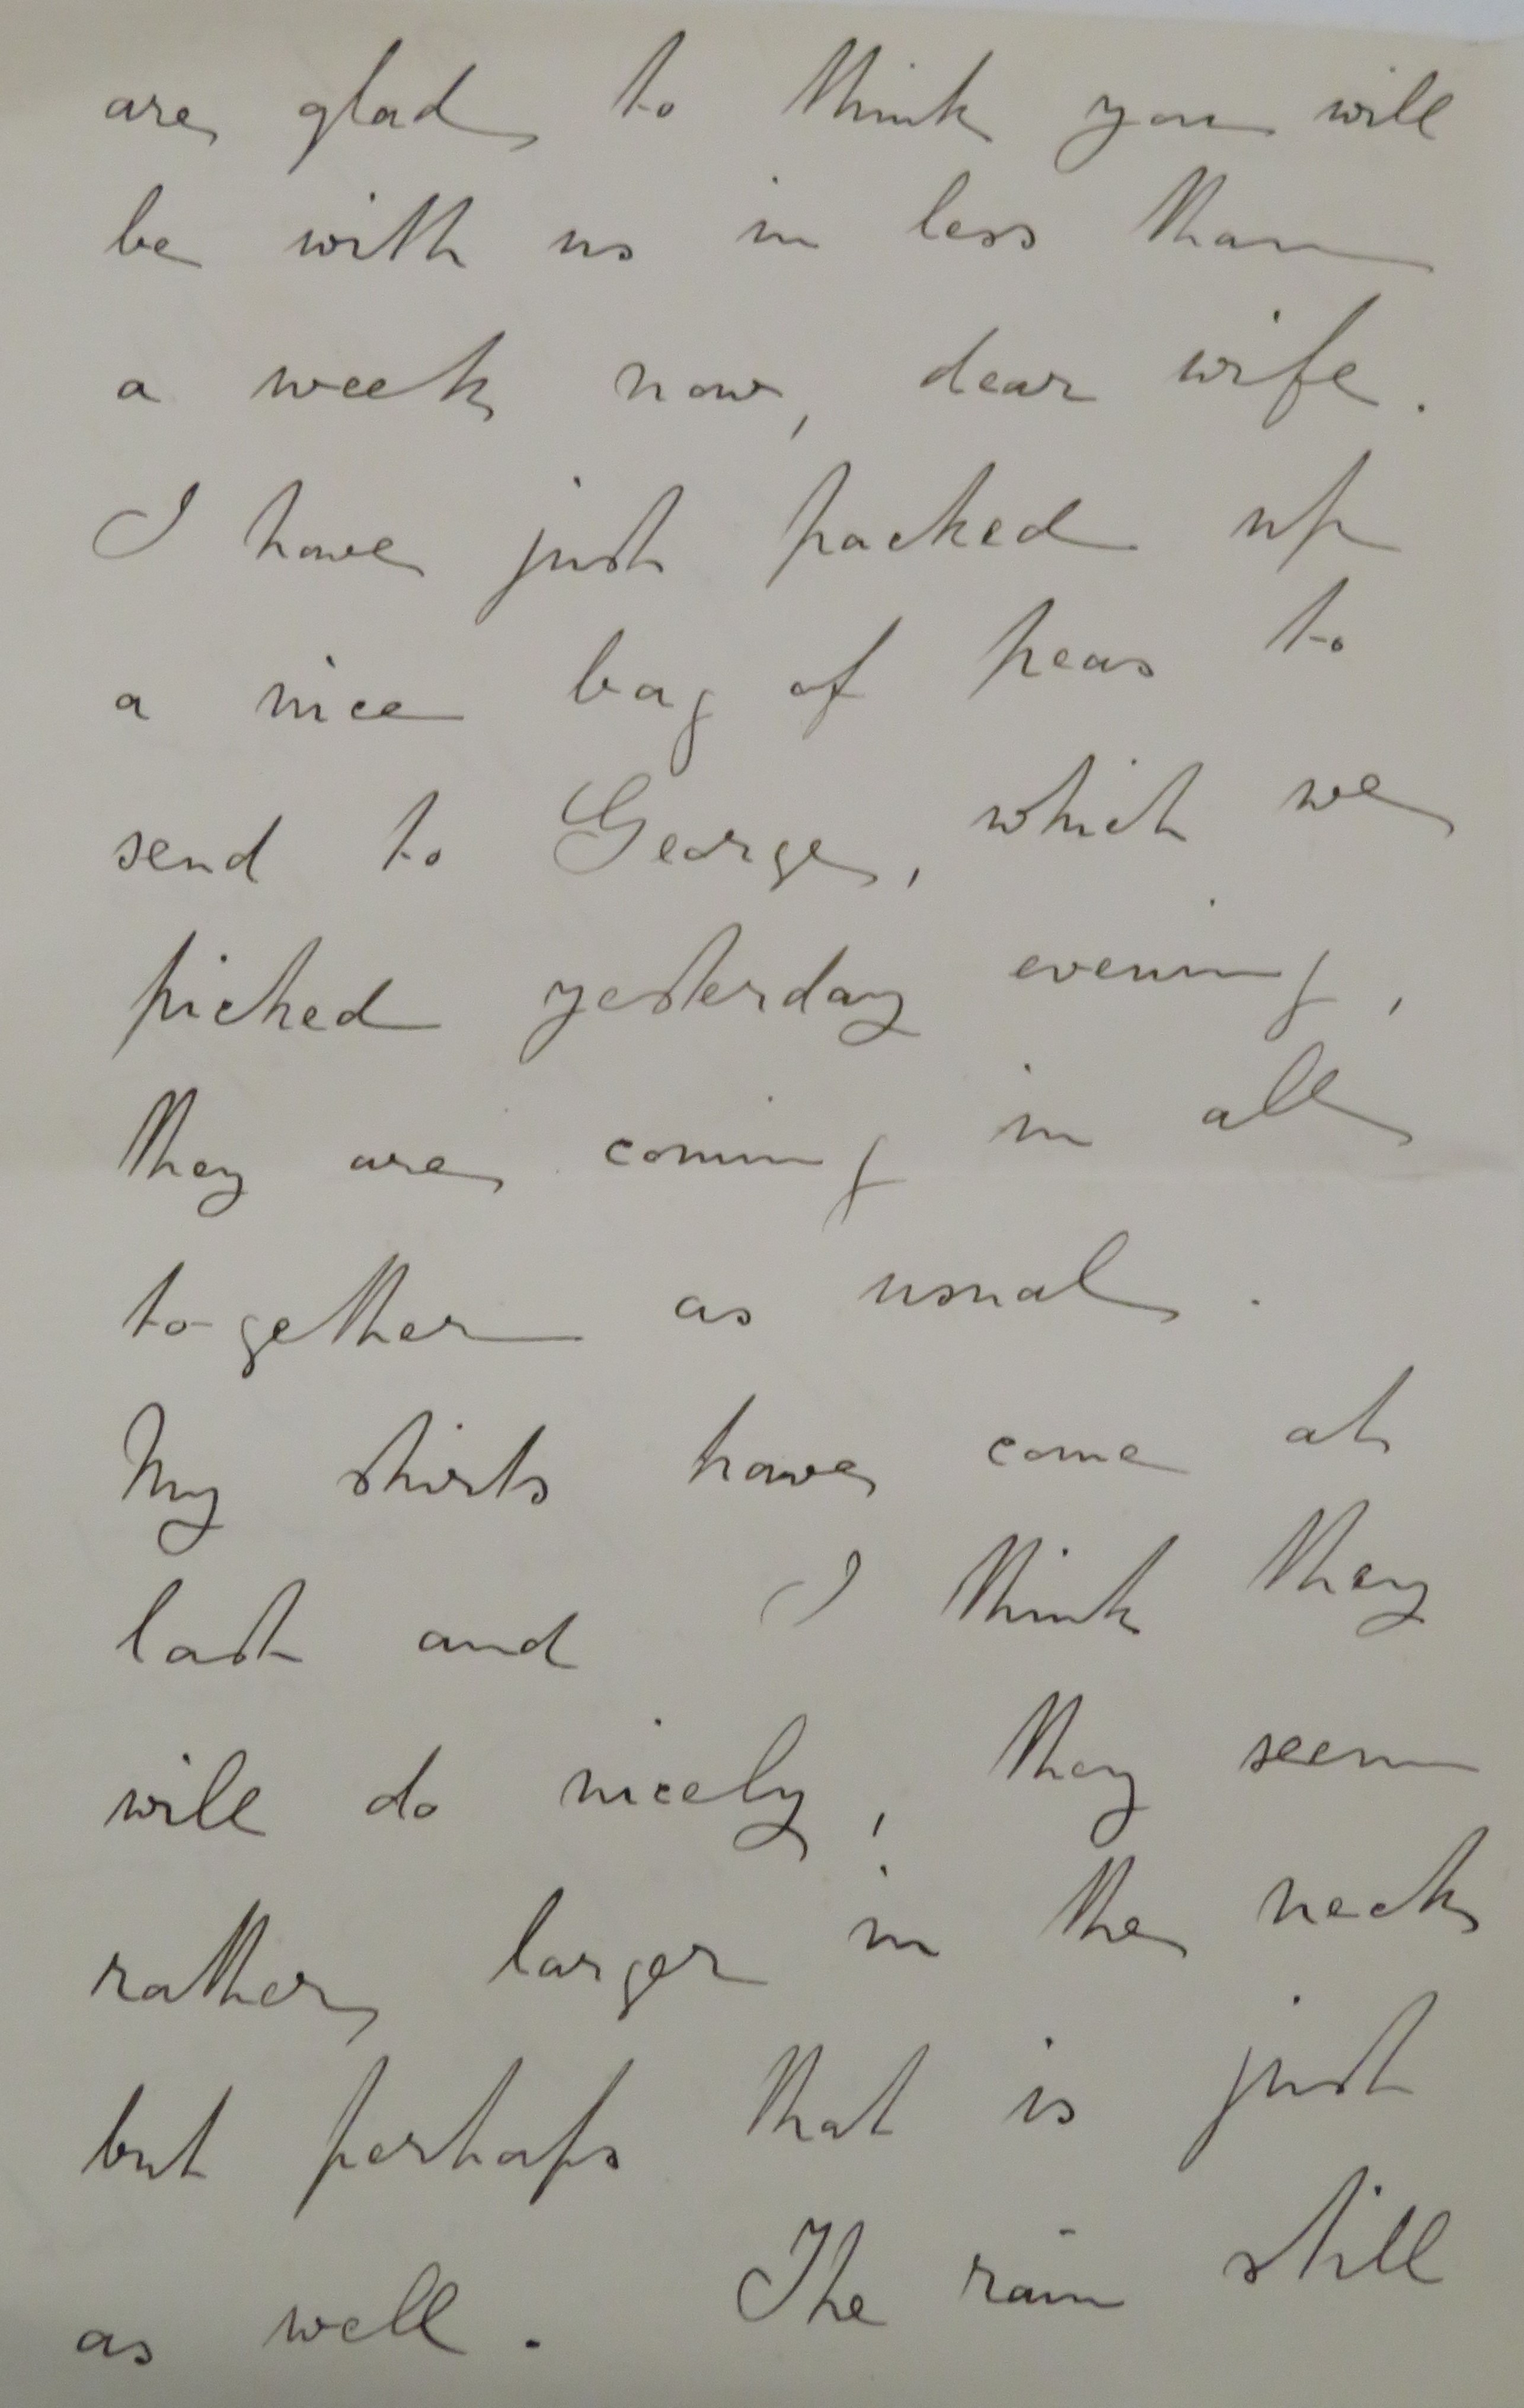 are glad to think you will
be with us in less than
a week now, dear wife.
I have just packed up
a nice bag of peas to
send to George, which we
picked yesterday evening,
they are coming in all
together as usual.
My shirts have come at
last and I think they
will do nicely, they seem
rather larger in the neck
but perhaps that is just
as well. The rain still